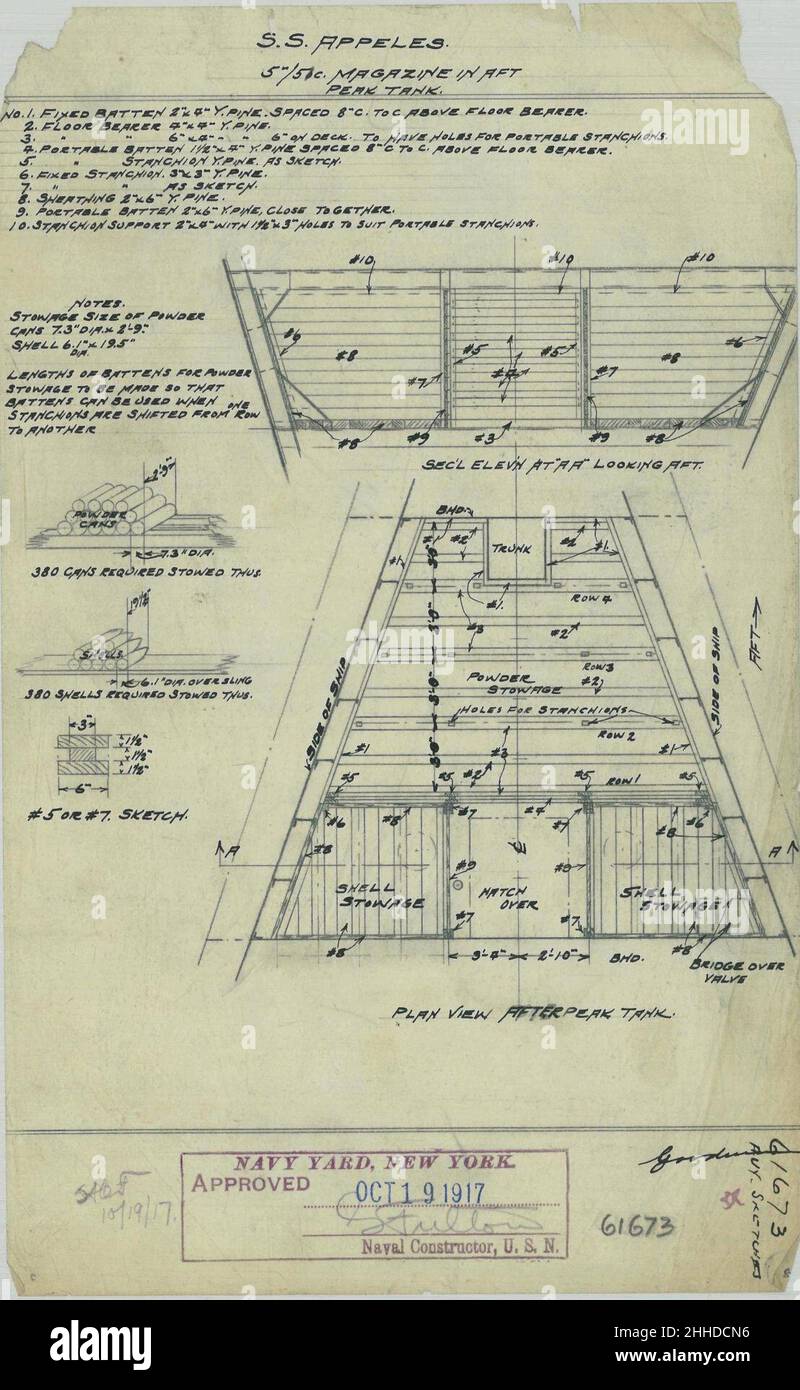 S.S. APPELES.
5"/50c. MAGAZINE IN AFT
PEAK TANK.
NO. 1. FIXED BATTEN 2"x4" Y. PINE. SPACED 8" C. TO C. ABOVE FLOOR BEARER.
2. FLOOR BEARER 4"x4" Y. PINE.
3. " " 6"x4" " " 6" ON DECK. TO HAVE HOLES FOR PORTABLE STANCHIONS.
4. PORTABLE BATTEN 1½"x4" Y. PINE SPACED 8" C TO C. ABOVE FLOOR BEARER.
5. " STANCHION Y. PINE. AS SKETCH.
6. FIXED STANCHION. 3"x3" Y. PINE.
7. " " AS SKETCH.
8. SHEATHING 2"x6" Y. PINE.
9. PORTABLE BATTEN 2"x6" Y. PINE, CLOSE TOGETHER.
10. STANCHION SUPPORT 2"x4" WITH 1½"x3" HOLES TO SUIT PORTABLE STANCHIONS.
#10 #10 #10
NOTES.
STOWAGE SIZE OF POWDER
CANS 7.3" DIA. x 2'-9."
SHELL 6.1" x 19.5"
DIA.
LENGTHS OF BATTENS FOR POWDER
STOWAGE TO BE MADE SO THAT
BATTENS CAN BE USED WHEN ONE
STANCHIONS ARE SHIFTED FROM ROW
TO ANOTHER
#6 #8 #7 #5 #4 #5 #7 #8 #6
#8 #9 #3 #9 #8
SEC'L ELEV'N AT "AA" LOOKING AFT.
2'-9"
POWDER
CANS
7.3" DIA.
380 CANS REQUIRED STOWED THUS.
19½"
SHELLS
6.1" DIA. OVER SLING
380 SHELLS REQUIRED STOWED THUS.
3"
1½"
1½"
1½"
6"
#5 OR #7. SKETCH.
BHD.
#1 #2 TRUNK #2 #1
#1
#1.
ROW 4
#3 #2
ROW 3
POWDER
STOWAGE
#2
HOLES FOR STANCHIONS
ROW 2
#1 #3 #1
#2 ROW 1
3'-0"
3'-0"
3'-0"
SIDE OF SHIP
SIDE OF SHIP
AFT
#5 #5 #5 #5
#6 #8 #7 #4 #7 #8 #6
A A
#8 #9
SHELL
STOWAGE
SHELL
STOWAGE
#7 #7
#8 3'-4" 2'-10" BHD. #8
BRIDGE OVER
VALVE
PLAN VIEW AFTER PEAK TANK.
NAVY YARD, NEW YORK.
APPROVED
OCT 19 1917
Naval Constructor, U. S. N.
10/19/17.
61673
61673
AUX. SKETCHES
alamy
alamy
alamy
a
alamy
Image ID: 2HHDCN6
www.alamy.com